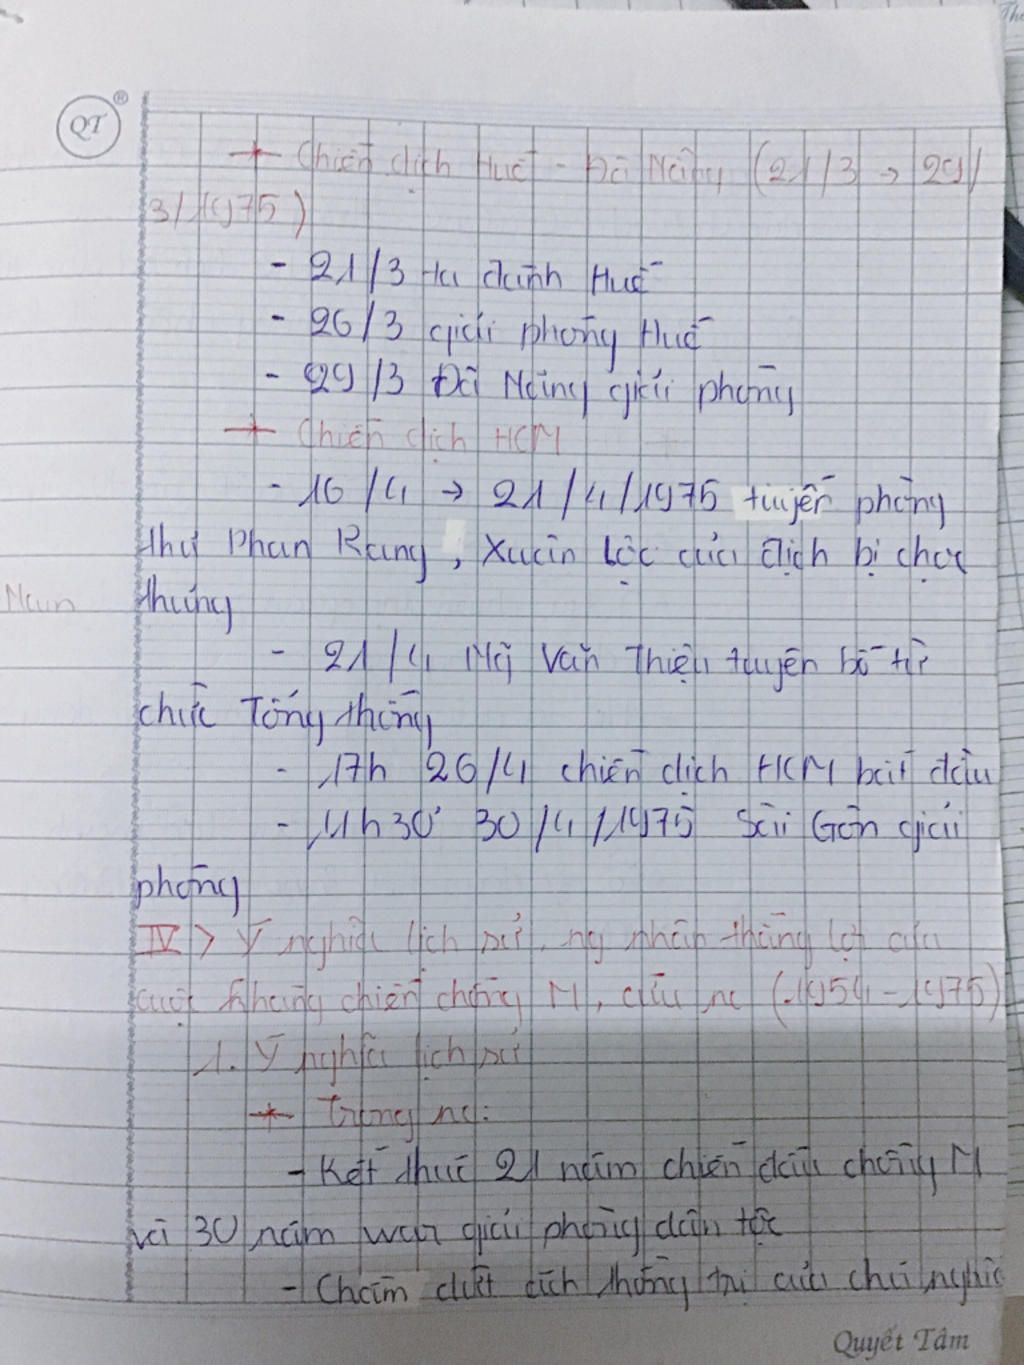 QT ®
* Chiến dịch Huế - Đà Nẵng (21/3 → 29/
3/1975)
- 21/3 ta đánh Huế
- 26/3 giải phóng Huế
- 29/3 Đà Nẵng giải phóng
* Chiến dịch HCM
- 16/4 → 21/4/1975 tuyến phòng
thủ Phan Rang, Xuân Lộc của địch bị chọc
thủng
- 21/4 Ng Văn Thiệu tuyên bố từ
chức Tổng thống
- 17h 26/4 chiến dịch HCM bắt đầu
- 11h30' 30/4/1975 Sài Gòn giải
phóng
IV > Ý nghĩa lịch sử, ng nhân thắng lợi của
cuộc kháng chiến chống M, cứu nc (1954 - 1975)
1. Ý nghĩa lịch sử
* Trong nc:
- Kết thúc 21 năm chiến đấu chống M
và 30 năm war giải phóng dân tộc
- Chấm dứt ách thống trị của chủ nghĩa
Quyết Tâm